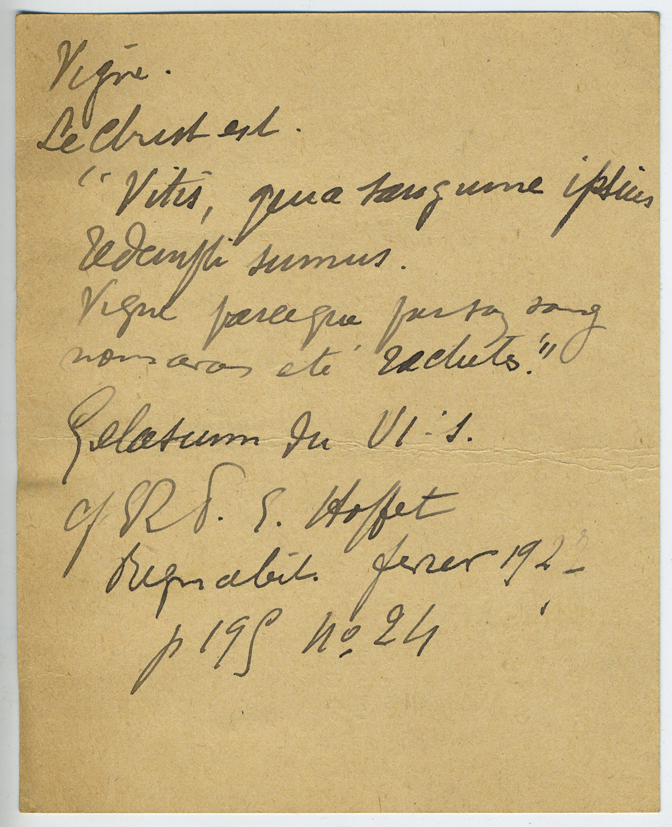 Vigne.
Le Christ est.
"Vitis, quia sanguine ipsius
redempti sumus.
Vigne parceque par son sang
nous avons été rachetés."
Gelasium du VIe s.
cf R P. E. Hoffet
Regnabit. fevrier 192
p 195 no 24